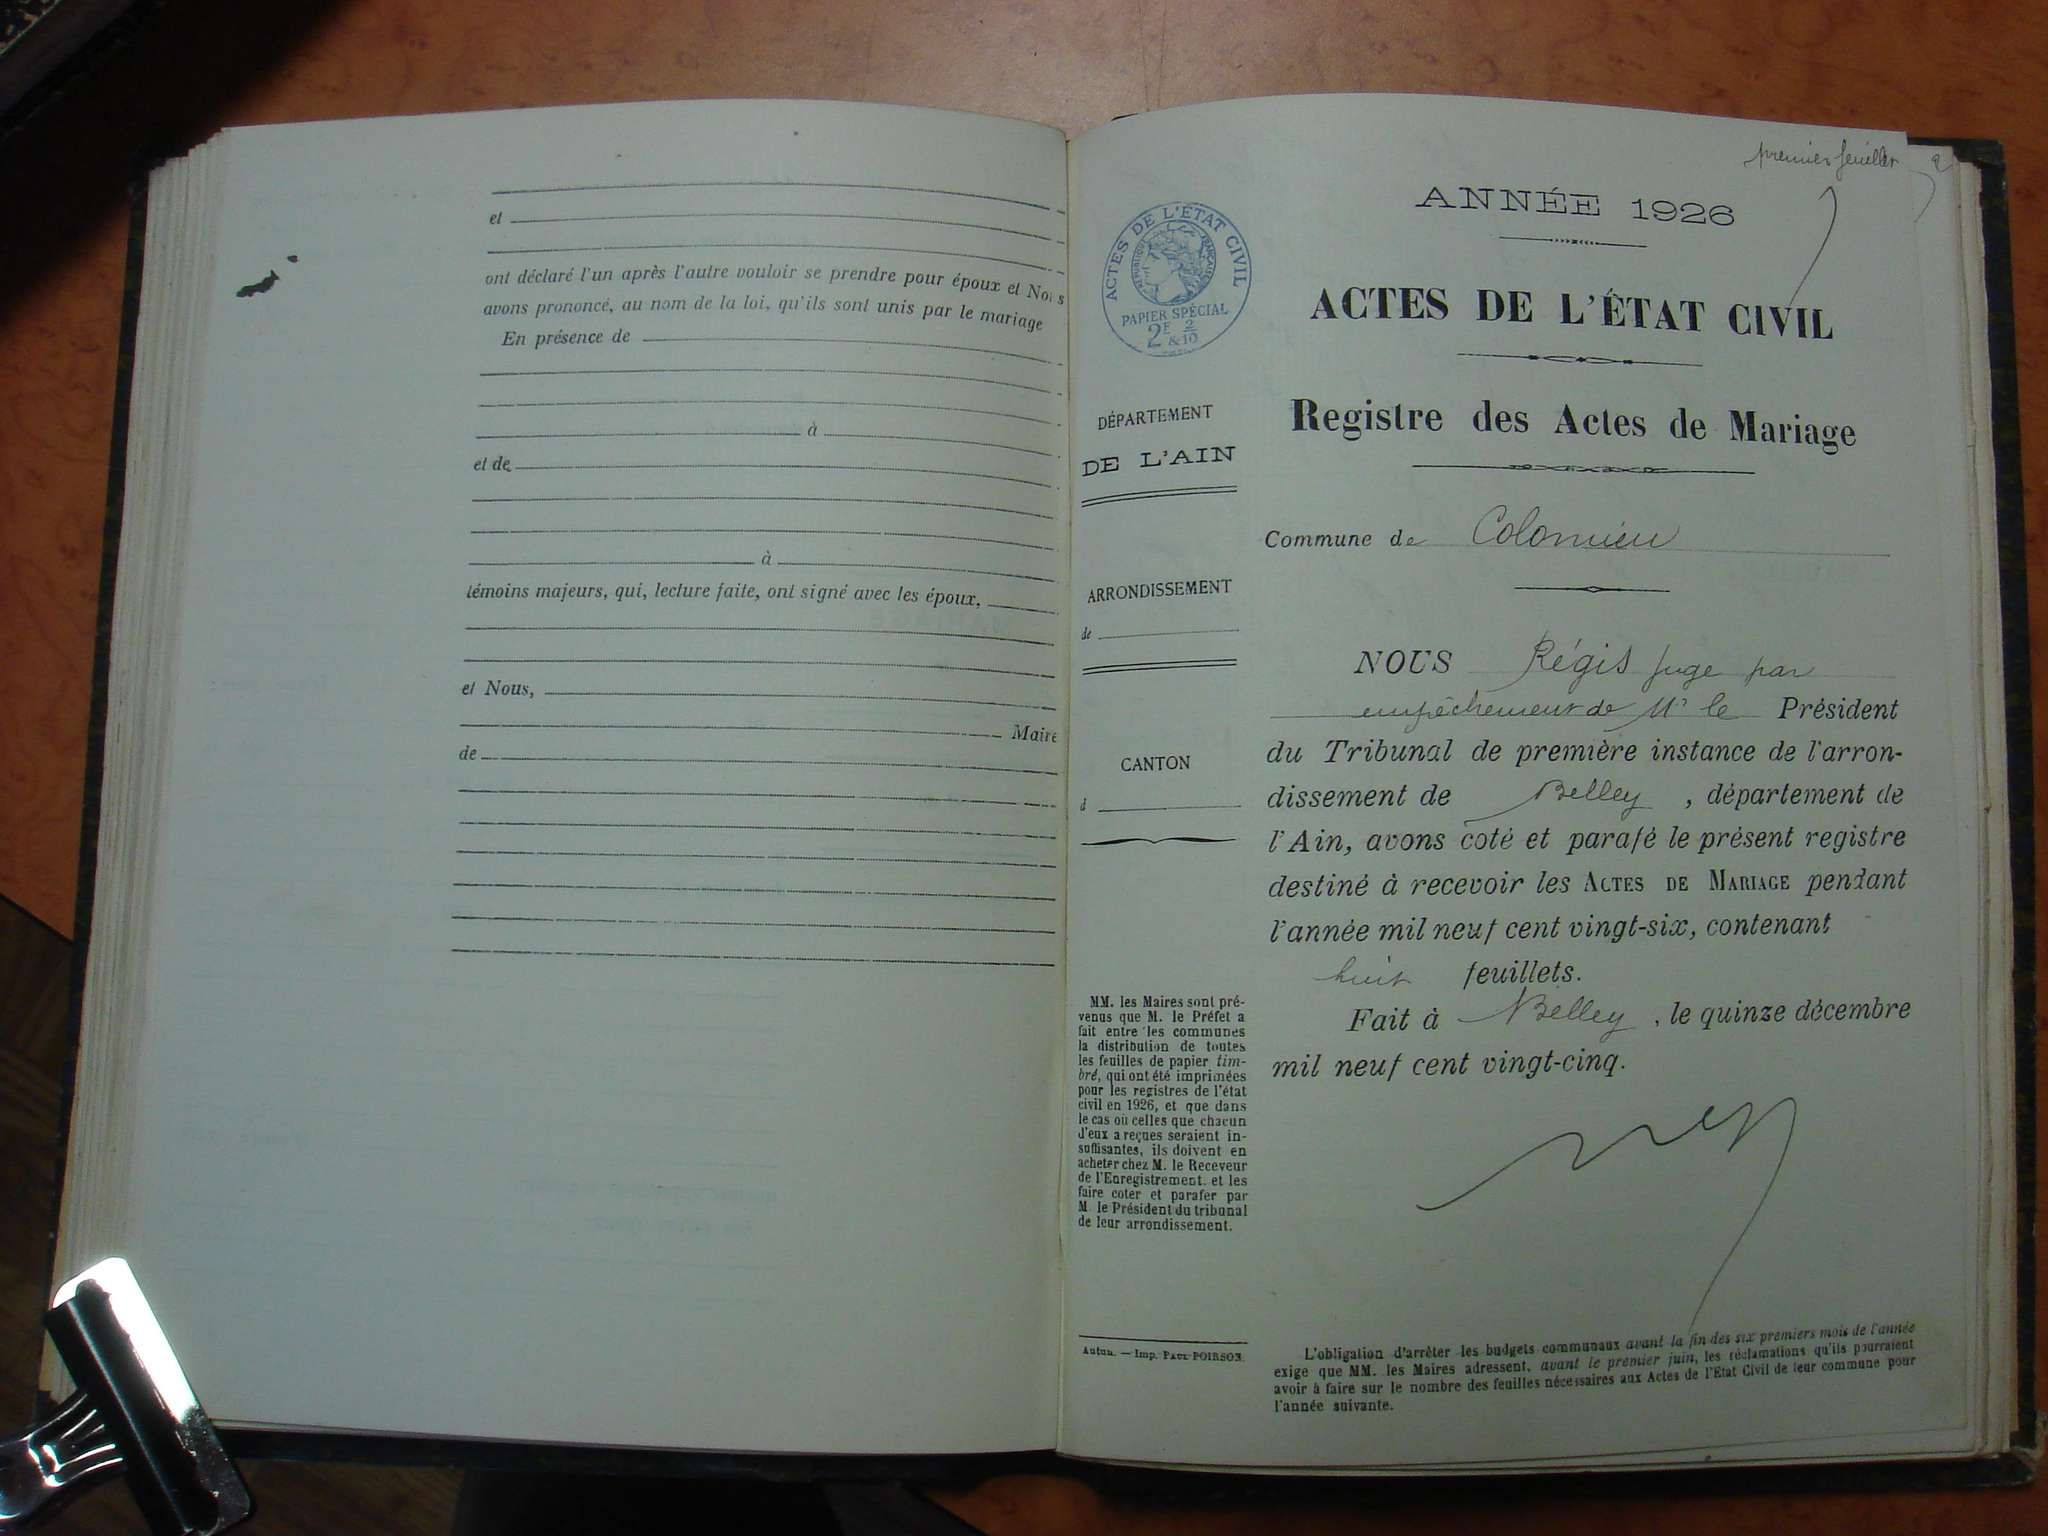 et
ont déclaré l'un après l'autre vouloir se prendre pour époux et Nous
avons prononcé, au nom de la loi, qu'ils sont unis par le mariage
En présence de
à
et de
à
témoins majeurs, qui, lecture faite, ont signé avec les époux,
et Nous,
Maire
de
premier feuillet
ANNÉE 1926
ACTES DE L'ÉTAT CIVIL
RÉPUBLIQUE FRANÇAISE
PAPIER SPÉCIAL
2F & 2/10
ACTES DE L'ÉTAT CIVIL
Registre des Actes de Mariage
Commune de Colomieu
DÉPARTEMENT
DE L'AIN
ARRONDISSEMENT
de
CANTON
d
NOUS Régis juge par
empêchement de Mr le Président
du Tribunal de première instance de l'arron-
dissement de Belley, département de
l'Ain, avons coté et parafé le présent registre
destiné à recevoir les ACTES DE MARIAGE pendant
l'année mil neuf cent vingt-six, contenant
huit feuillets.
Fait à Belley, le quinze décembre
mil neuf cent vingt-cinq.
MM. les Maires sont pré-
venus que M. le Préfet a
fait entre les communes
la distribution de toutes
les feuilles de papier tim-
bré, qui ont été imprimées
pour les registres de l'état
civil en 1926, et que dans
le cas où celles que chacun
d'eux a reçues seraient in-
suffisantes, ils doivent en
acheter chez M. le Receveur
de l'Enregistrement. et les
faire coter et parafer par
M. le Président du tribunal
de leur arrondissement.
Autun. — Imp. PAUL POIRSON.
L'obligation d'arrêter les budgets communaux avant la fin des six premiers mois de l'année
exige que MM. les Maires adressent, avant le premier juin, les réclamations qu'ils pourraient
avoir à faire sur le nombre des feuilles nécessaires aux Actes de l'État Civil de leur commune pour
l'année suivante.